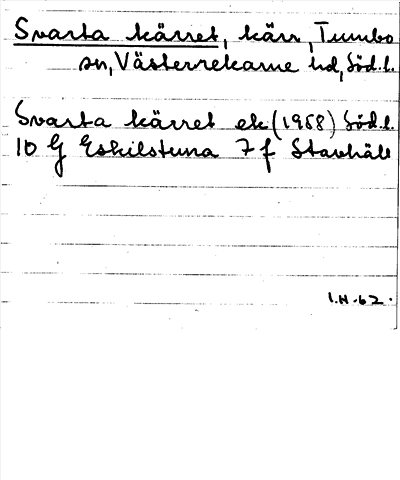 Svarta kärret, kärr, Tumbo
sn, Västerrekarne hd, Söd.l.
Svarta kärret ek (1958) Söd.l.
10 G Eskilstuna 7 f Stavhäll
I.H-62.